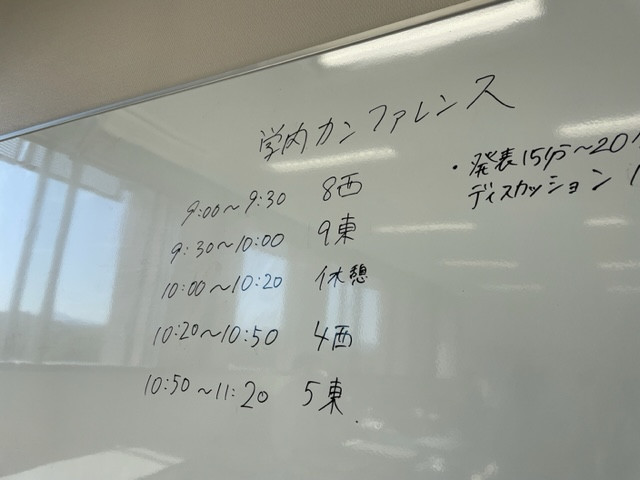 学内カンファレンス
9:00～9:30 8西
9:30～10:00 9東
10:00～10:20 休憩
10:20～10:50 4西
10:50～11:20 5東
・発表15分～20
ディスカッション